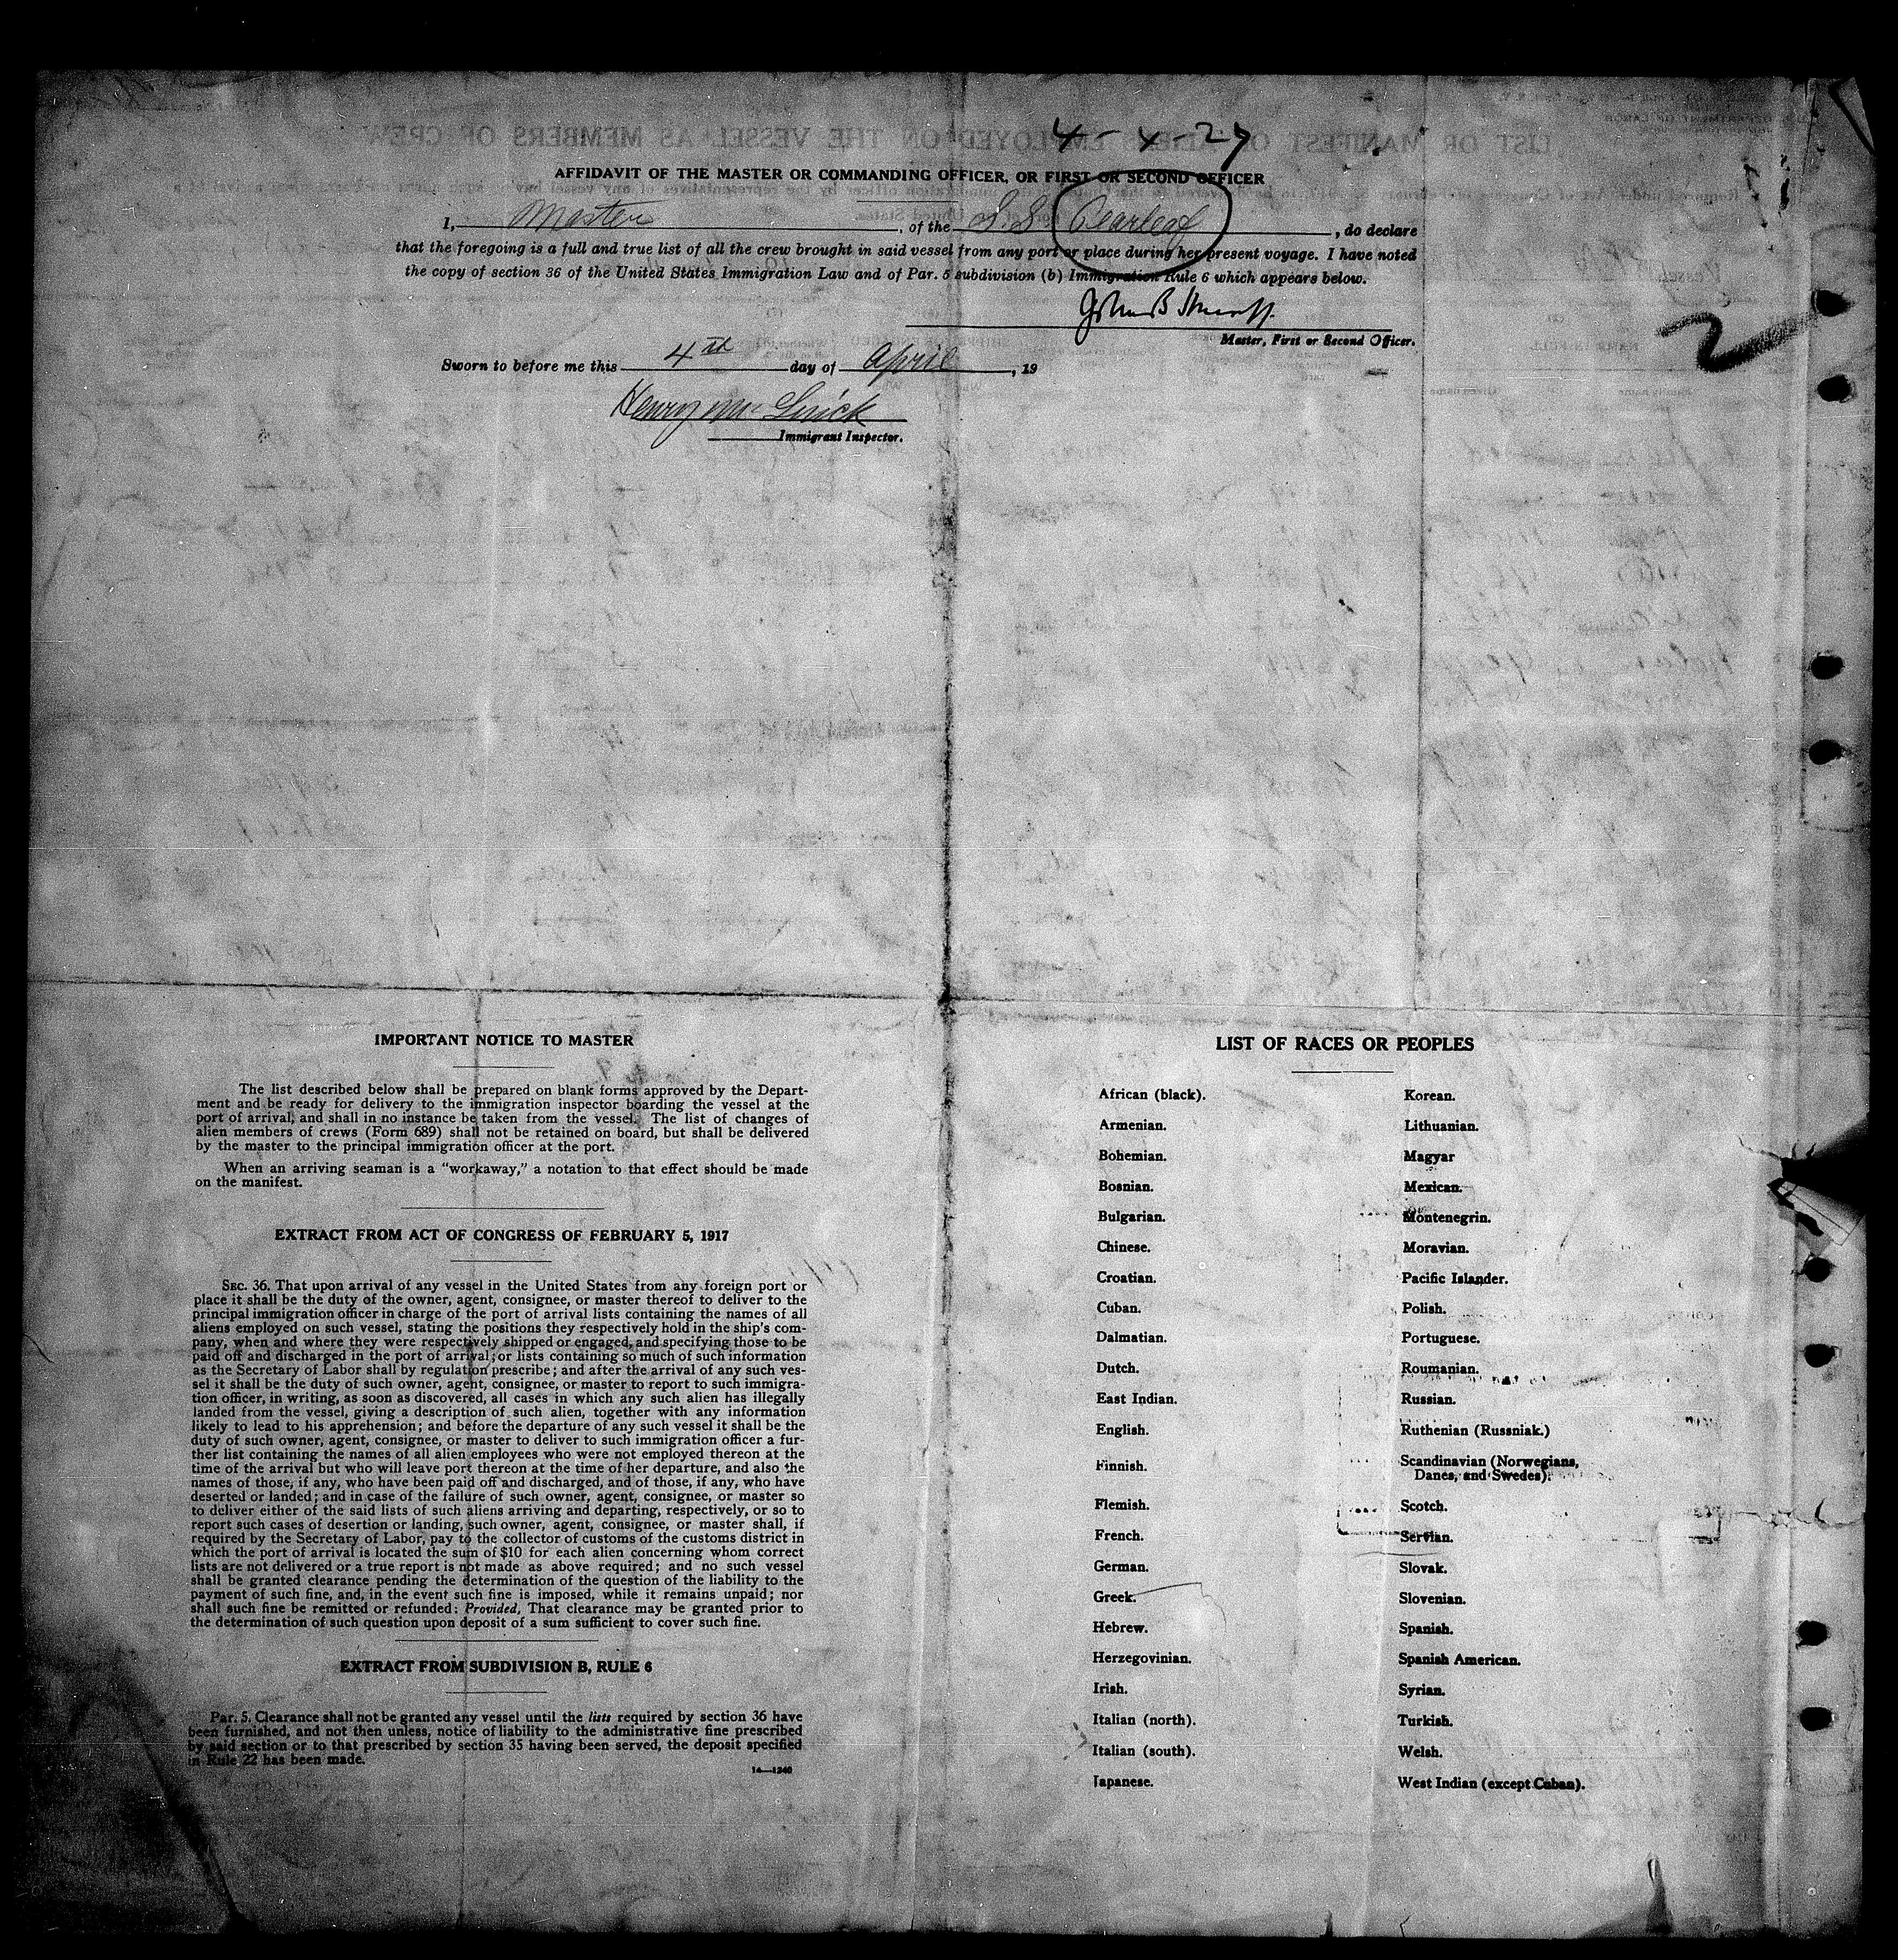 4-4-27
AFFIDAVIT OF THE MASTER OR COMMANDING OFFICER, OR FIRST OR SECOND OFFICER
I, Master, of the S.S. Pearleaf, do declare
that the foregoing is a full and true list of all the crew brought in said vessel from any port or place during her present voyage. I have noted
the copy of section 36 of the United States Immigration Law and of Par. 5 subdivision (b) Immigration Rule 6 which appears below.
John B
Master, First or Second Officer.
2
Sworn to before me this 4th day of April, 19
Henry
Immigrant Inspector.
IMPORTANT NOTICE TO MASTER
The list described below shall be prepared on blank forms approved by the Depart-
ment and be ready for delivery to the immigration inspector boarding the vessel at the
port of arrival, and shall in no instance be taken from the vessel. The list of changes of
alien members of crews (Form 689) shall not be retained on board, but shall be delivered
by the master to the principal immigration officer at the port.
When an arriving seaman is a "workaway," a notation to that effect should be made
on the manifest.
EXTRACT FROM ACT OF CONGRESS OF FEBRUARY 5, 1917
SEC. 36. That upon arrival of any vessel in the United States from any foreign port or
place it shall be the duty of the owner, agent, consignee, or master thereof to deliver to the
principal immigration officer in charge of the port of arrival lists containing the names of all
aliens employed on such vessel, stating the positions they respectively hold in the ship's com-
pany, when and where they were respectively shipped or engaged, and specifying those to be
paid off and discharged in the port of arrival; or lists containing so much of such information
as the Secretary of Labor shall by regulation prescribe; and after the arrival of any such ves-
sel it shall be the duty of such owner, agent, consignee, or master to report to such immigra-
tion officer, in writing, as soon as discovered, all cases in which any such alien has illegally
landed from the vessel, giving a description of such alien, together with any information
likely to lead to his apprehension; and before the departure of any such vessel it shall be the
duty of such owner, agent, consignee, or master to deliver to such immigration officer a fur-
ther list containing the names of all alien employees who were not employed thereon at the
time of the arrival but who will leave port thereon at the time of her departure, and also the
names of those, if any, who have been paid off and discharged, and of those, if any, who have
deserted or landed; and in case of the failure of such owner, agent, consignee, or master so
to deliver either of the said lists of such aliens arriving and departing, respectively, or so to
report such cases of desertion or landing, such owner, agent, consignee, or master shall, if
required by the Secretary of Labor, pay to the collector of customs of the customs district in
which the port of arrival is located the sum of $10 for each alien concerning whom correct
lists are not delivered or a true report is not made as above required; and no such vessel
shall be granted clearance pending the determination of the question of the liability to the
payment of such fine, and, in the event such fine is imposed, while it remains unpaid; nor
shall such fine be remitted or refunded: Provided, That clearance may be granted prior to
the determination of such question upon deposit of a sum sufficient to cover such fine.
EXTRACT FROM SUBDIVISION B, RULE 6
Par. 5. Clearance shall not be granted any vessel until the lists required by section 36 have
been furnished, and not then unless, notice of liability to the administrative fine prescribed
by said section or to that prescribed by section 35 having been served, the deposit specified
in Rule 22 has been made.
14—1240
LIST OF RACES OR PEOPLES
African (black).
Armenian.
Bohemian.
Bosnian.
Bulgarian.
Chinese.
Croatian.
Cuban.
Dalmatian.
Dutch.
East Indian.
English.
Finnish.
Flemish.
French.
German.
Greek.
Hebrew.
Herzegovinian.
Irish.
Italian (north).
Italian (south).
Japanese.
Korean.
Lithuanian.
Magyar
Mexican.
Montenegrin.
Moravian.
Pacific Islander.
Polish.
Portuguese.
Roumanian.
Russian.
Ruthenian (Russniak.)
Scandinavian (Norwegians,
Danes, and Swedes).
Scotch.
Servian.
Slovak.
Slovenian.
Spanish.
Spanish American.
Syrian.
Turkish.
Welsh.
West Indian (except Cuban).